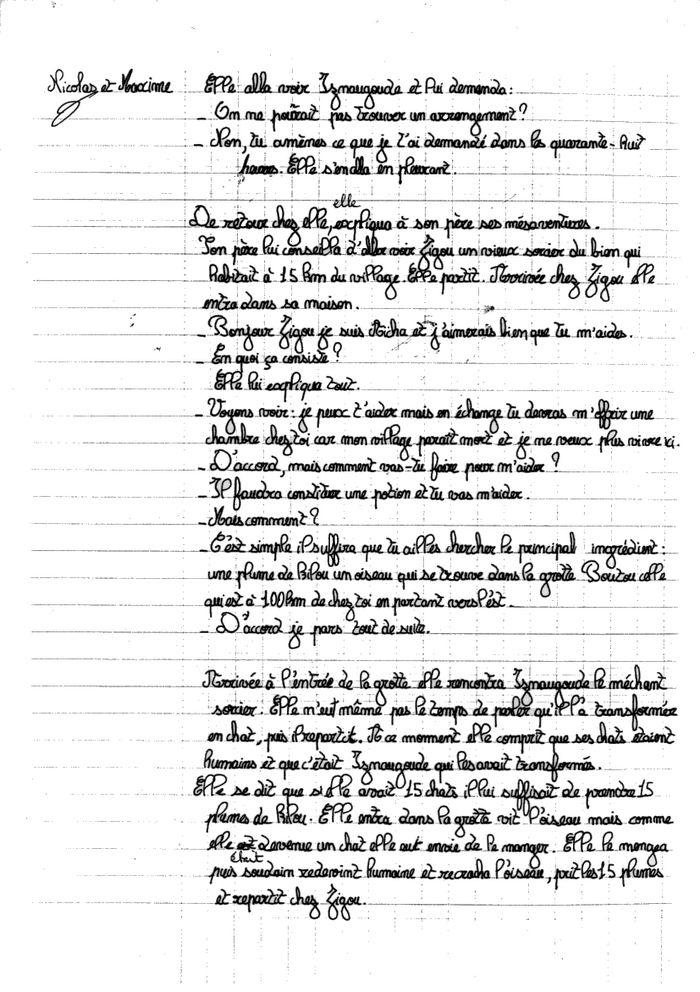 Nicolas et Maxime
Elle alla voir Izmaugoude et lui demanda :
- On ne pourrait pas trouver un arrangement ?
- Non, tu amènes ce que je t'ai demandé dans les quarante-huit
heures. Elle s'en alla en pleurant.
elle
De retour chez elle, expliqua à son père ses mésaventures.
Son père lui conseilla d'aller voir Zigou un vieux sorcier du bien qui
habitait à 15 km du village. Elle partit. Arrivée chez Zigou elle
entra dans sa maison.
- Bonjour Zigou je suis Aicha et j'aimerais bien que tu m'aides.
- En quoi ça consiste ?
Elle lui expliqua tout.
- Voyons voir : je peux t'aider mais en échange tu devras m'offrir une
chambre chez toi car mon village paraît mort et je ne veux plus vivre ici.
- D'accord, mais comment vas-tu faire pour m'aider ?
- Il faudra constituer une potion et tu vas m'aider.
- Mais comment ?
- C'est simple il suffira que tu ailles chercher le principal ingrédient :
une plume de Bilou un oiseau qui se trouve dans la grotte Boutou elle
qui est à 100 km de chez toi en partant vers l'est.
- D'accord je pars tout de suite.
Arrivée à l'entrée de la grotte elle rencontra Izmaugoude le méchant
sorcier. Elle n'eut même pas le temps de parler qu'il l'a transformée
en chat, puis il repartit. A ce moment elle comprit que ses chats étaient
humains et que c'était Izmaugoude qui les avait transformés.
Elle se dit que si elle avait 15 chats il lui suffisait de prendre 15
plumes de Bilou. Elle entra dans la grotte vit l'oiseau mais comme
elle est devenue un chat elle eut envie de le manger. Elle le mangea
était
puis soudain redevint humaine et recracha l'oiseau, prit les 15 plumes
et repartit chez Zigou.